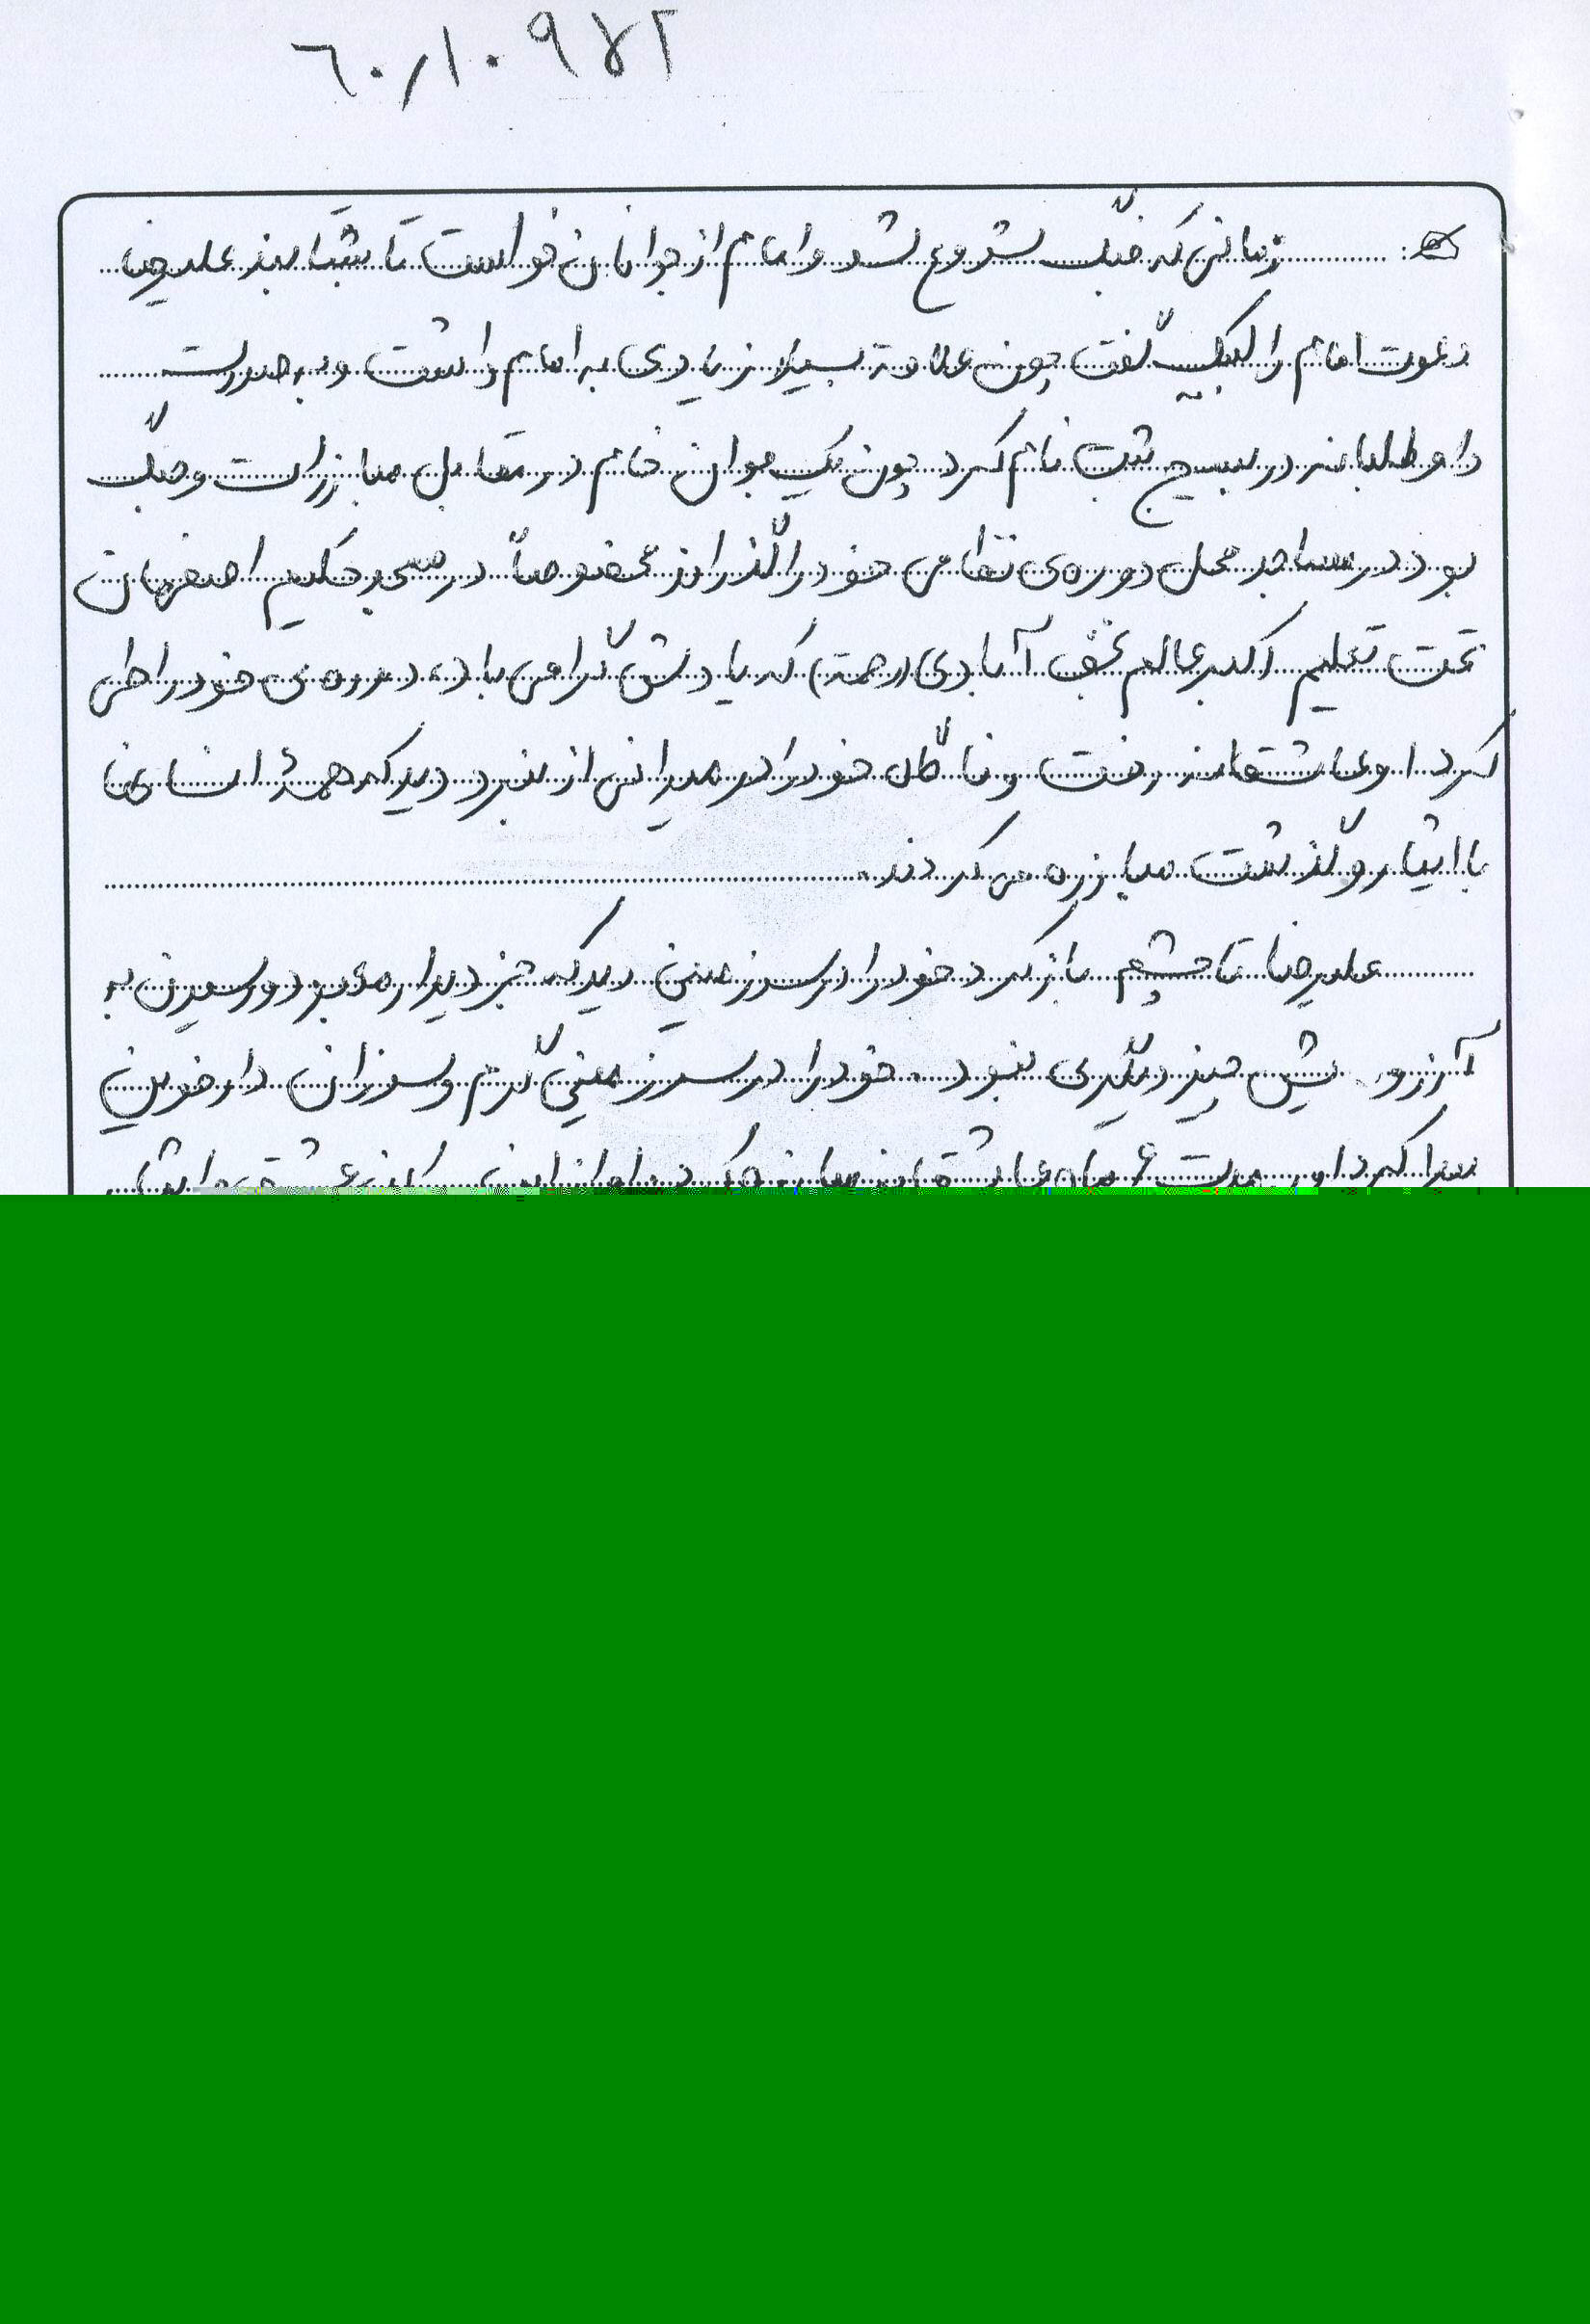 ۶۰٫۱۰۹۷۲
زمانی که جنگ شروع شد و امام از جوانان خواست تا بشتابند علیرضا
دعوت امام را لبیک گفت چون علاقه بسیار زیادی به امام داشت و به صورت
داوطلبانه در بسیج ثبت نام کرد چون یک جوان خام در مقابل مبارزات و جنگ
بود در مساجد محل دوره‌ی نظامی خود را گذراند مخصوصاً در مسجد حکیم اصفهان
تحت تعلیم اکبر عالم نجف آبادی (رحمة) که یادش گرامی باد، دوره‌ی خود را طی
کرد. او عاشقانه رفت و ناگاه خود را در میدانی از نبرد دید که همه انسانی
با ایثار و گذشت مبارزه می کردند.
علیرضا تا چشم باز کرد خود را در سرزمینی دید که جز دیدار معبود و رسیدن به
آرزویش چیز دیگری نبود. خود را در سرزمینی گرم و سوزان دارخوین
پیدا کرد او مدت ۶ ماه عاشقانه